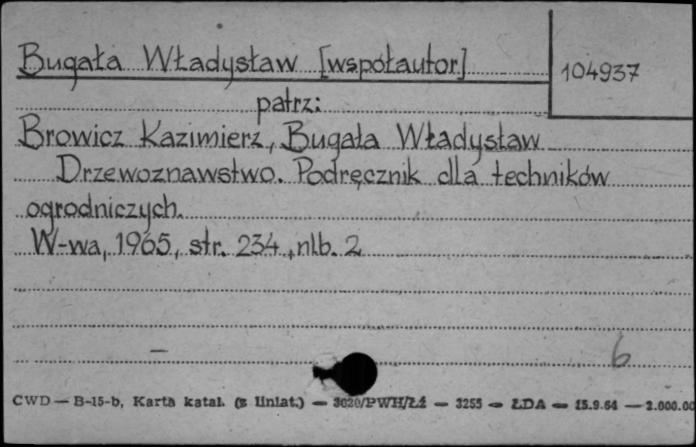 Bugała Władysław [współautor]
104937
patrz:
Browicz Kazimierz, Bugała Władysław
Drzewoznawstwo. Podręcznik dla techników
ogrodniczych.
W-wa, 1965, str. 234, nlb. 2
6
CWD — B-15-b, Karta katal. (z liniat.) — 3020/PWH/Łź — 3255 — ŁDA — 15.9.64 — 2.000.00